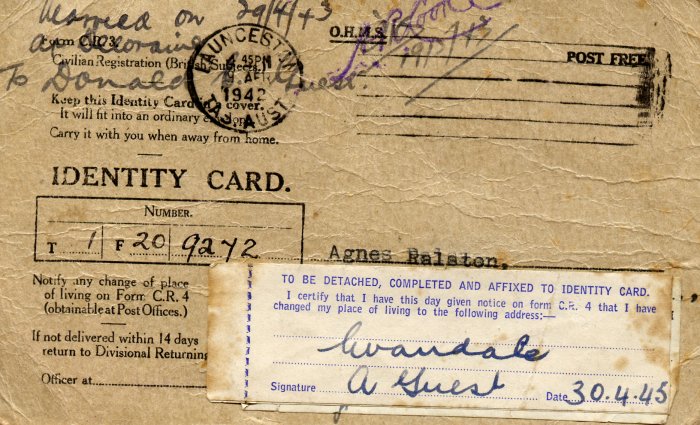 Married on 29/4/43
at Deloraine
To Donald Guest.
Form C.R. 3.
Civilian Registration (British Subjects.)
Keep this Identity Card cover.
It will fit into an ordinary
Carry it with you when away from home.
IDENTITY CARD.
NUMBER.
T 1 F 20 9272
Notify any change of place
of living on Form C.R. 4
(obtainable at Post Offices.)
If not delivered within 14 days
return to Divisional Returning
Officer at
LAUNCESTON
45PM
AP
1942
TAS. AUST
O.H.M.S.
19/5/43
POST FREE
Agnes Ralston,
TO BE DETACHED, COMPLETED AND AFFIXED TO IDENTITY CARD.
I certify that I have this day given notice on form C.R. 4 that I have
changed my place of living to the following address:—
Evandale
Signature A Guest Date 30.4.45